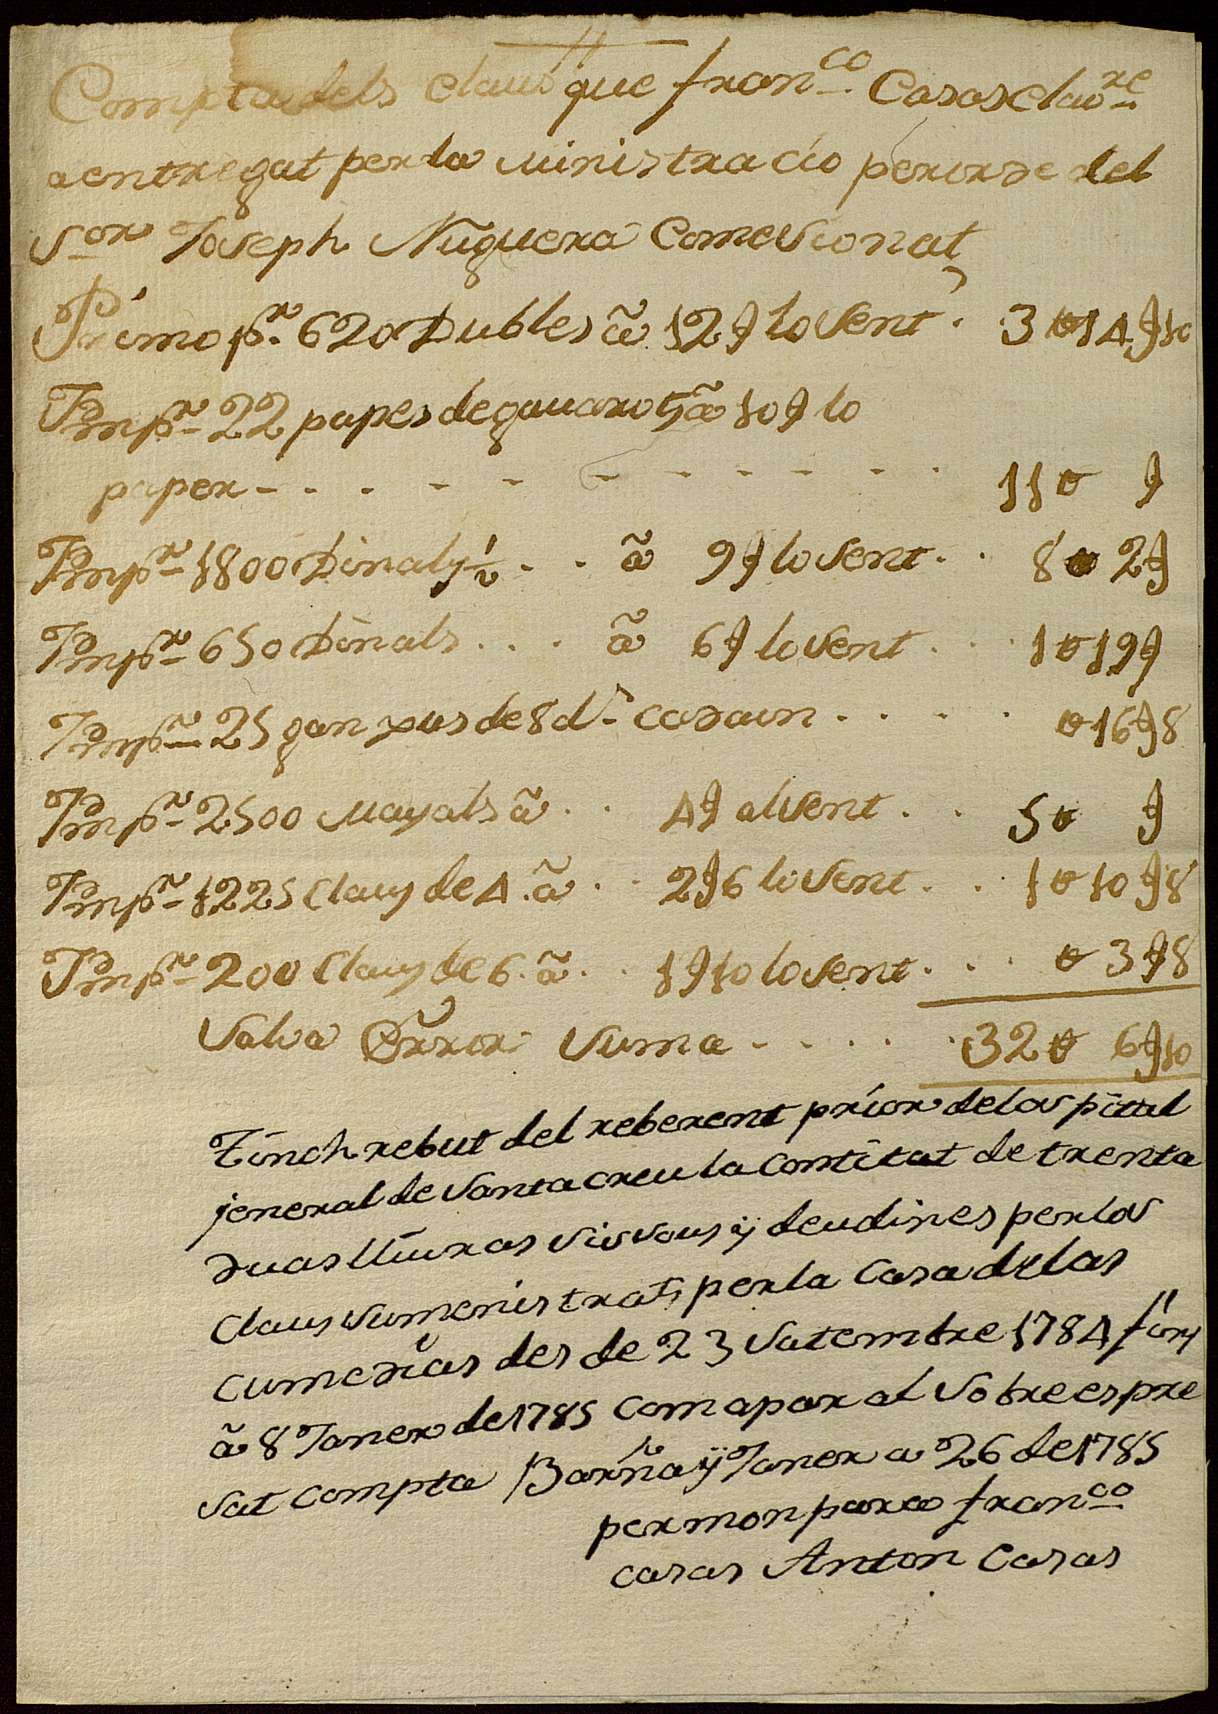 Compta dels claus que fran.co Casas claure
a entregat per la ministracio per orde del
Sor Joseph Nuguera Comesionat
Primo pr. 620 Dubles â 12 s lo sent . 3 ₶ 14 s 10
Itm pr. 22 papes de gauarots â 10 s lo
paper - - - - - - - - - 11 ₶ s
Itm pr. 1800 Dinals y ½ . . â 9 s lo sent . . 8 ₶ 2 s
Itm pr. 650 Dinals . . . â 6 s lo sent . . . 1 ₶ 19 s
Itm pr. 25 ganxus de 8 ds. cadaun . . . . ₶ 16 s 8
Itm pr. 2500 Mayals â . . 4 s al sent . . 5 ₶ s
Itm pr. 1225 Claus de 4 . â . . 2 s 6 lo sent . . 1 ₶ 10 s 8
Itm pr. 200 Claus de 6 . â . . 1 s 10 lo sent . . . ₶ 3 s 8
Salva Error Suma . . . . . 32 ₶ 6 s 10
Tinch rebut del reberent prior delospital
jeneral de Santa creu la contitat de trenta
duas lliuras sis sous ÿ deu dines per los
Claus sumenistrats per la Casa de las
cumedias des de 23 Satembre 1784 fins
â 8 Janer de 1785 com apar al sobre espre
sat compta Barña ÿ Janer a 26 de 1785
per mon para fran.co
casas Anton Casas